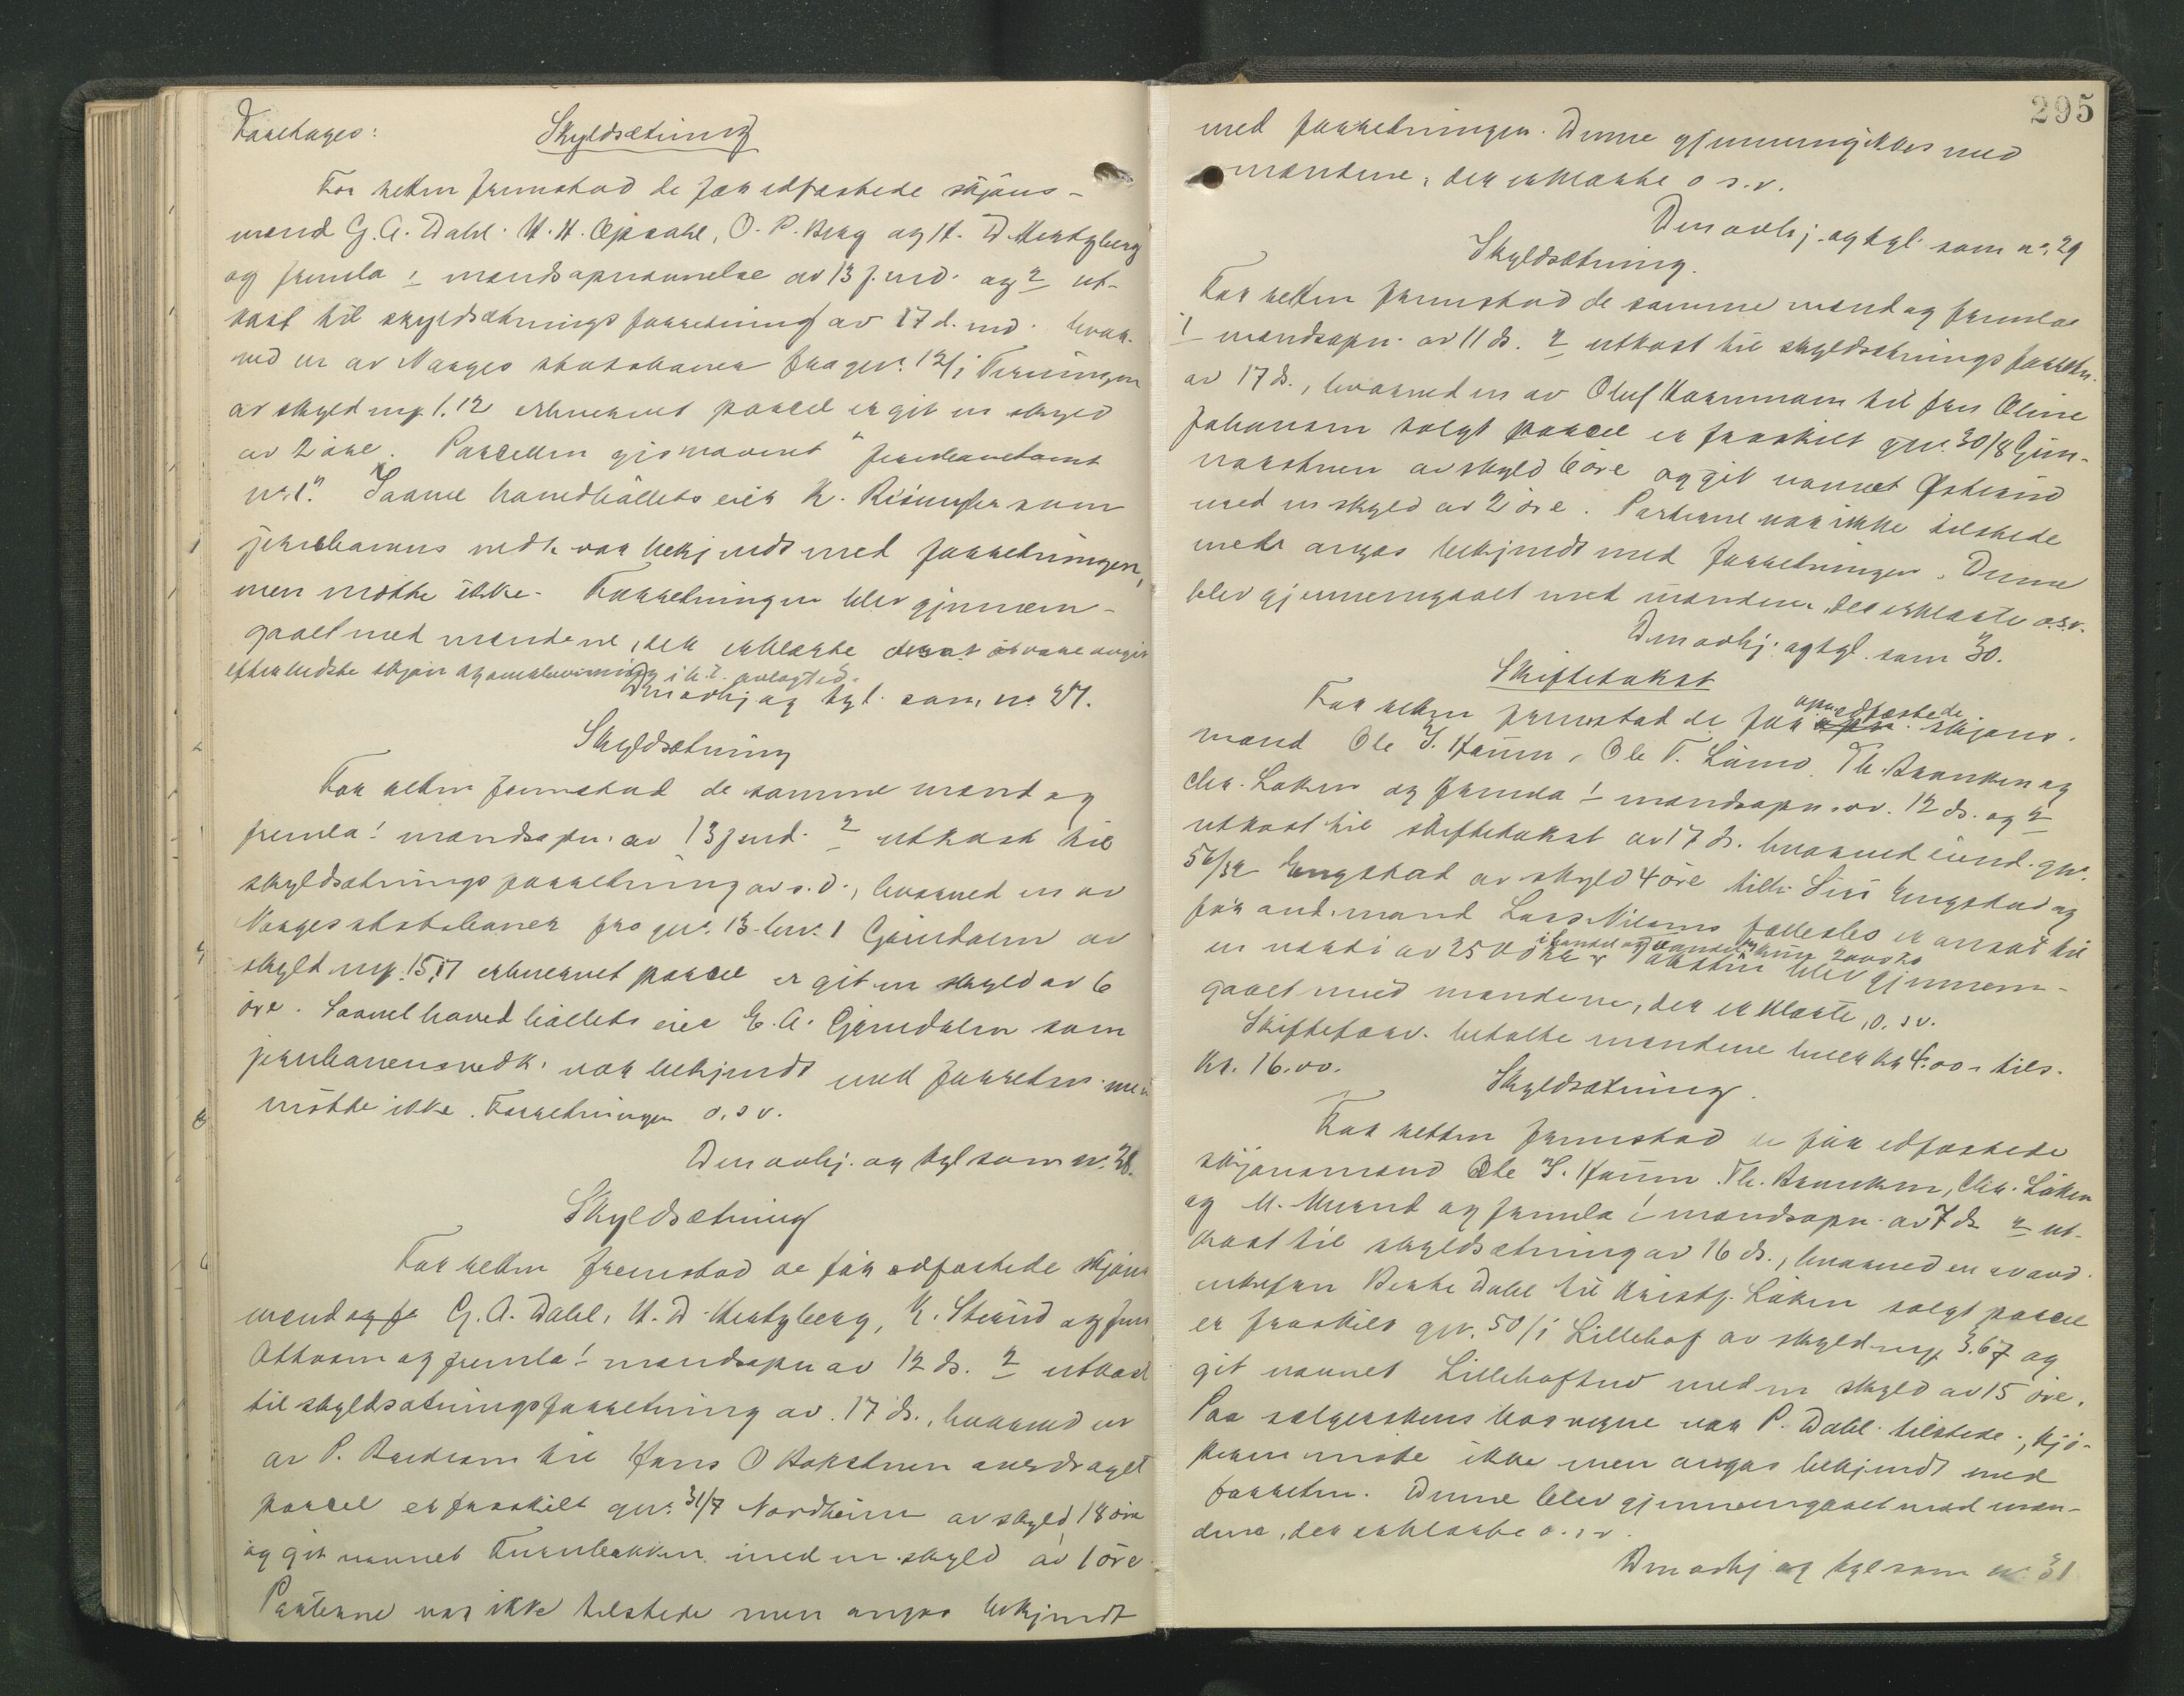 Foretages: Skyldsætning
For retten fremstod de før edfæstede skjøns-
mænd G. A. Dahl. H. H. Opsahl, O. P. Berg og H. D. Hertzberg
og fremla 1 mandsopnævnelse av 13 f. md. og 2 ut-
kast til skyldsætningsforretning av 17 d. md. hvor-
ved en av Norges statsbaner fra gnr. 12/1 Terningen
av skyld mg 1.12 erhvervet parcel er git en skyld
av 2 øre. Parcellen gis navnet "Jernbanetomt
nr. 1". Saavel hovedbøllets eier K. som
jernbanens vedk. var bekjendt med forretningen,
men møtte ikke. Forretningen blev gjennem-
gaaet med mændene, der erklærte den at være avgit
efter bedste skjøn og overbevisning i h. t. avlagt ed.
Den avhj. og tgl. som nr. 27.
Skyldsætning
For retten fremstod de samme mænd og
fremla 1 mandsopn. av 13 f. md. 2 utkast til
skyldsætningsforretning av s. d., hvorved en av
Norges statsbaner fra gnr. 13 bnr. 1 Grindalen av
skyld mg. 15,17 erhvervet parcel er git en skyld av 6
øre. Saavel hovedbøllets eier E. A. Grindalen som
jernbanens vedk. var bekjendt med forretn. men
møtte ikke. Forretningen o. s. v.
Den avhj. og tgl som nr. 28.
Skyldsætning
For retten fremstod de før edfæstede skjøns
mænd og fr G. A. Dahl, H. D. Hertzberg, K. Strand og Jens
og fremla 1 mandsopn av 12 ds. 2 utkast
til skyldsætningsforretning av 17 ds., hvorved en
av P. til Hans O overdraget
parcel er fraskilt gnr. 31/7 Nordheim av skyld 18 øre
og git navnet Furubakken med en skyld av 1 øre.
Parterne var ikke tilstede men anges bekjendt
295
med forretningen. Denne gjennemgikkes med
mændene, der erklærte o s. v.
Den avhj. og tgl. som nr. 29
Skyldsætning.
For retten fremstod de samme mænd og fremla
1 mandsopn. av 11 ds. 2 utkast til skyldsætningsforretn.
av 17 ds., hvorved en av Oluf til fru Oline
Johansen solgt parcel er fraskilt gnr. 30/8 Gun-
narstuen av skyld 6 øre og git navnet Østlund
med en skyld av 2 øre. Parterne var ikke tilstede
men anges bekjendt med forretningen. Denne
blev gjennemgaaet med mændene, der erklærte o. s. v.
Den avhj. og tgl. som 30.
Skiftetakst
For retten fremstod de før opn edfæstede skjøns-
mænd Ole S. Haum, Ole T. Th. Braaten og
Chr. Løken og fremla 1 mandsopn. av. 12 ds. og 2
utkast til skiftetakst av 17 ds. hvorved eiend. gnr.
56/32 Engstad av skyld 4 øre tilh. Siri Engstad og
før avd. mand Lars Nilsens fællesbo er ansat til
en værdi av 2500 kr i handel og vandel og kun 2000 kr. Taksten blev gjennem-
gaaet med mændene, der erklærte, o. s v.
Skifteforv. betalte mændene hver kr 4.00 - tils.
kr. 16.00.
Skyldsætning.
For retten fremstod de før edfæstede
skjønsmænd Ole S. Haum. Th. Braaten, Chr. Løken
og M. og fremla 1 mandsopn. av 7 ds 2 ut-
kast til skyldsætning av 16 ds., hvorved en av avd.
enkefru Berte Dahl til Kristf. Løken solgt parcel
er fraskilt gnr. 50/1 Lillehof av skyld mg 3.67 og
git navnet Lillehoftun med en skyld av 15 øre.
Paa sælgerskens bos vegne var P. Dahl tilstede; kjø-
peren møtte ikke men anges bekjendt med
forretn. Denne blev gjennemgaaet med mæn-
dene, der erklærte o. s v.
Den avhj og tgl som nr. 31